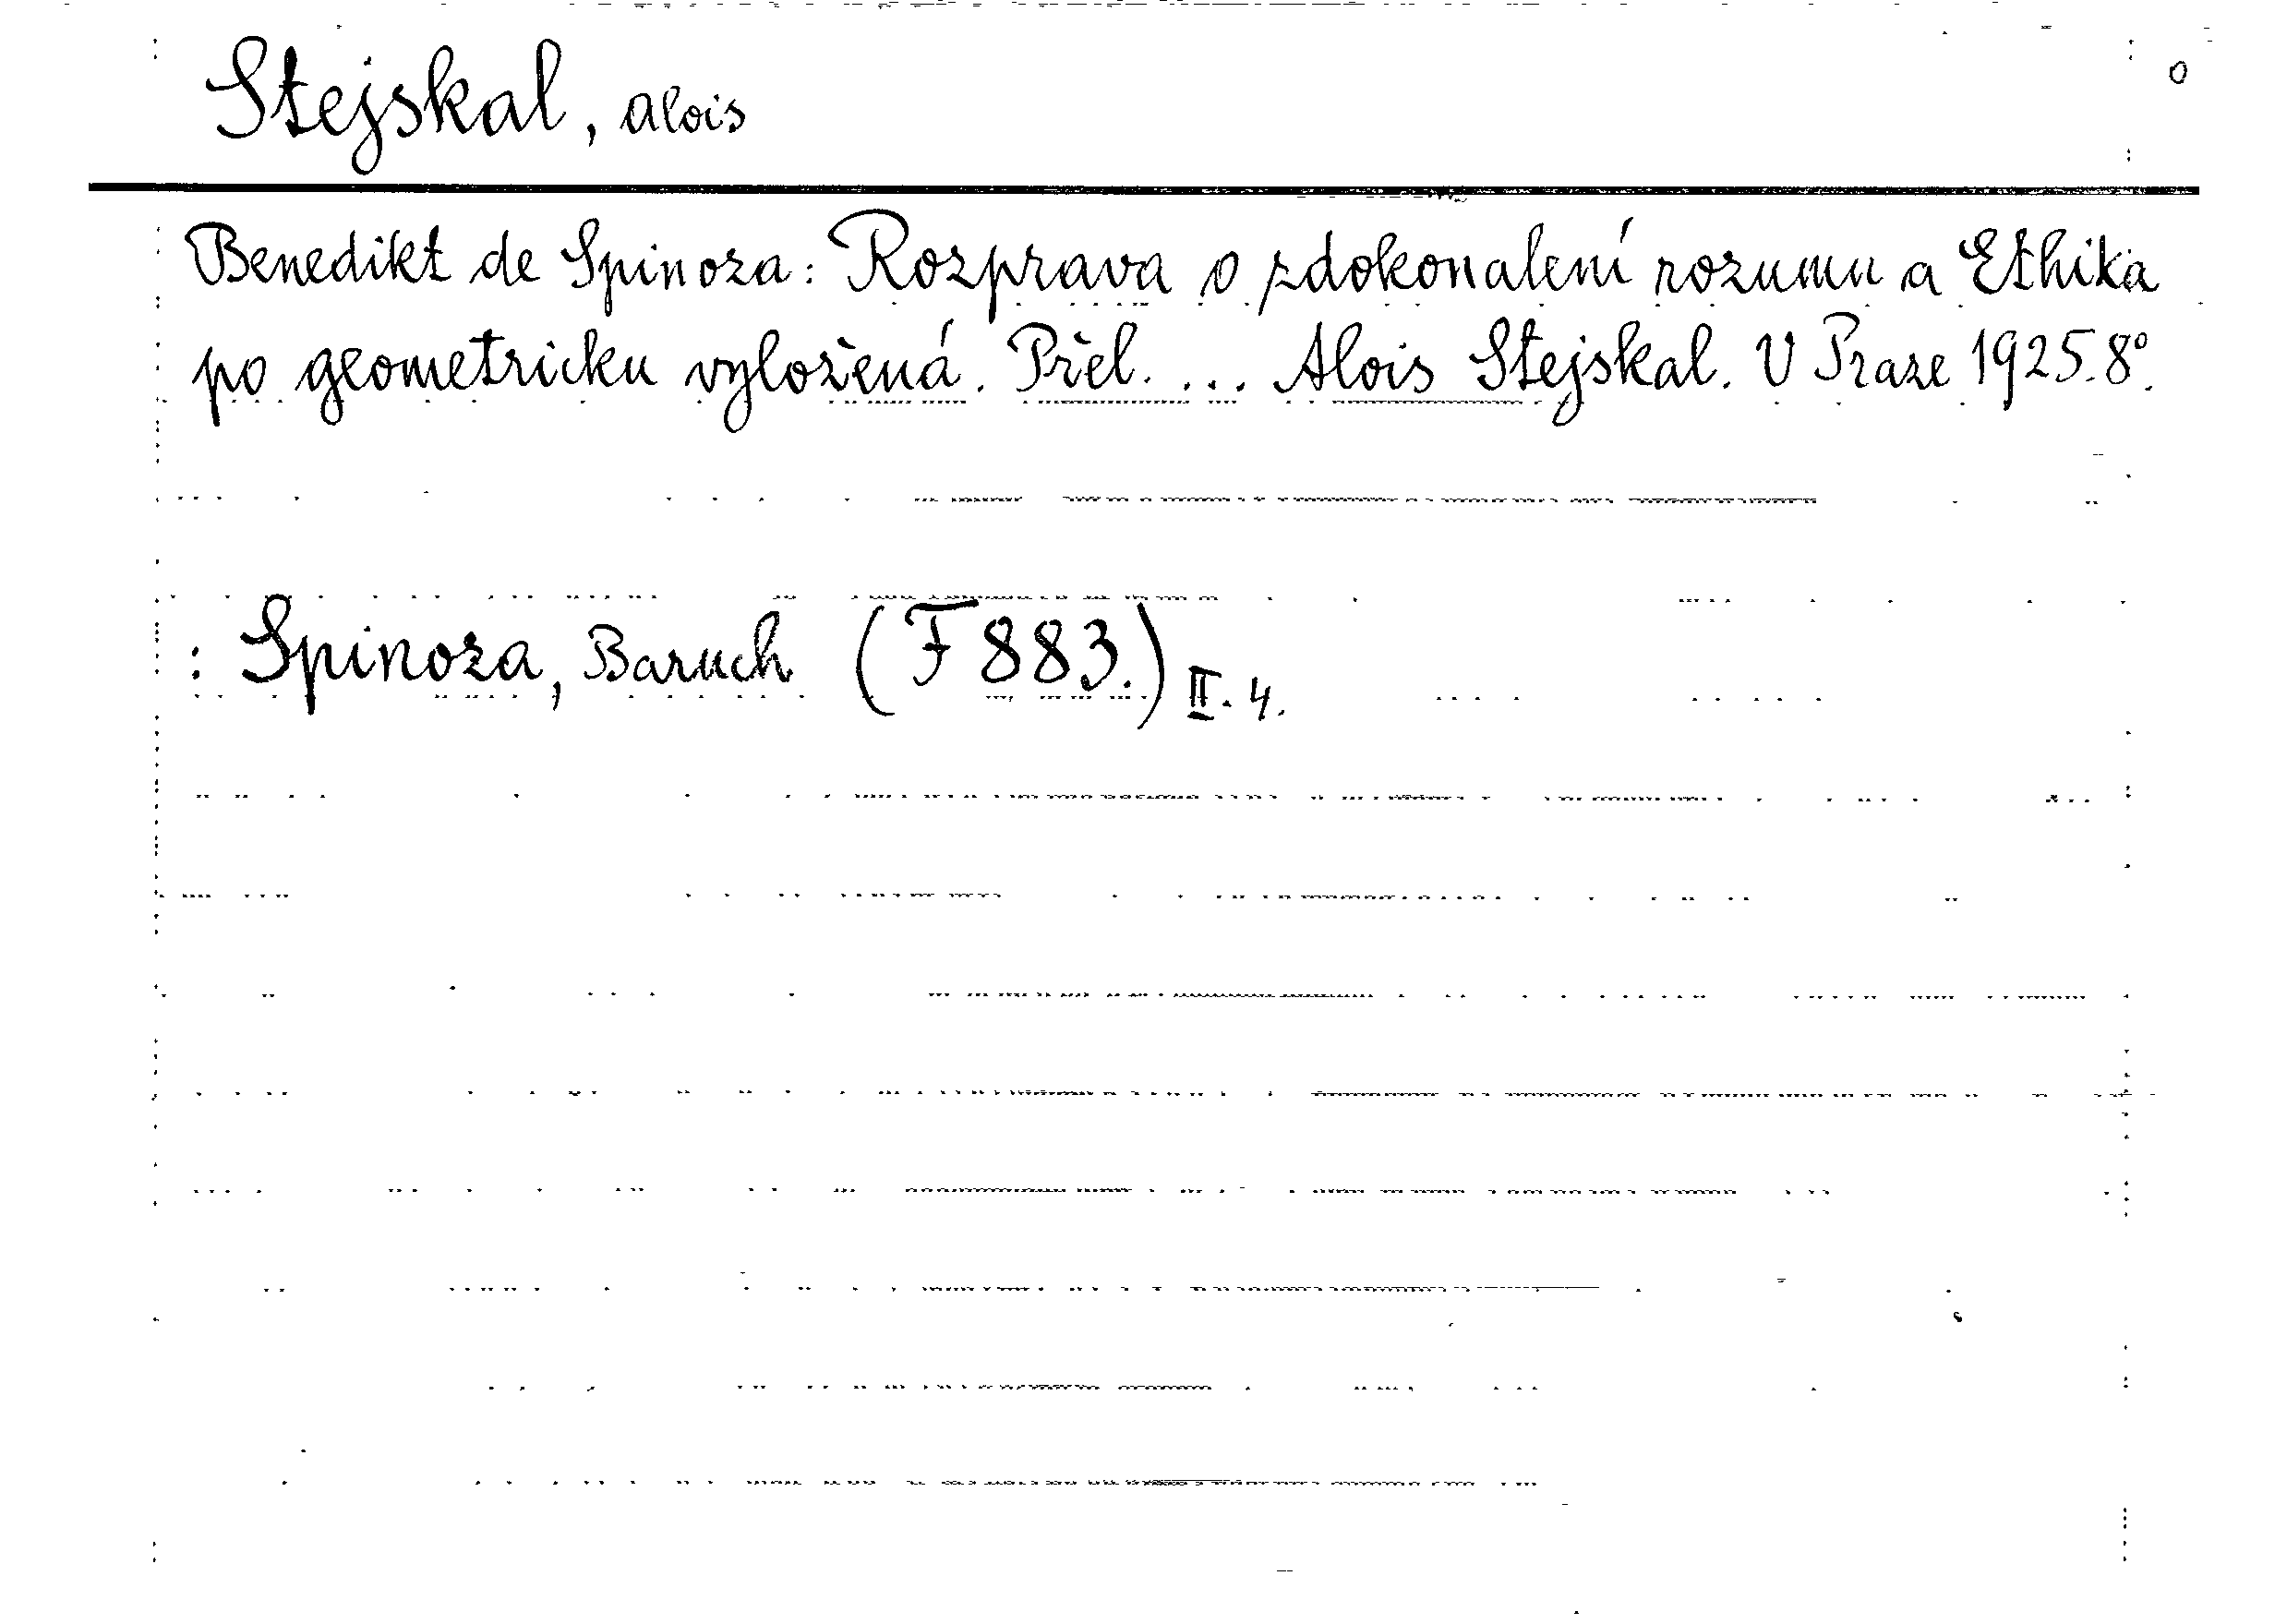 Stejskal, Alois
Benedikt de Spinoza: Rozprava o zdokonalení rozumu a Ethika
po geometricku vyložená. Přel. ... Alois Stejskal. V Praze 1925. 8°.
: Spinoza, Baruch (F 883.) II. 4.